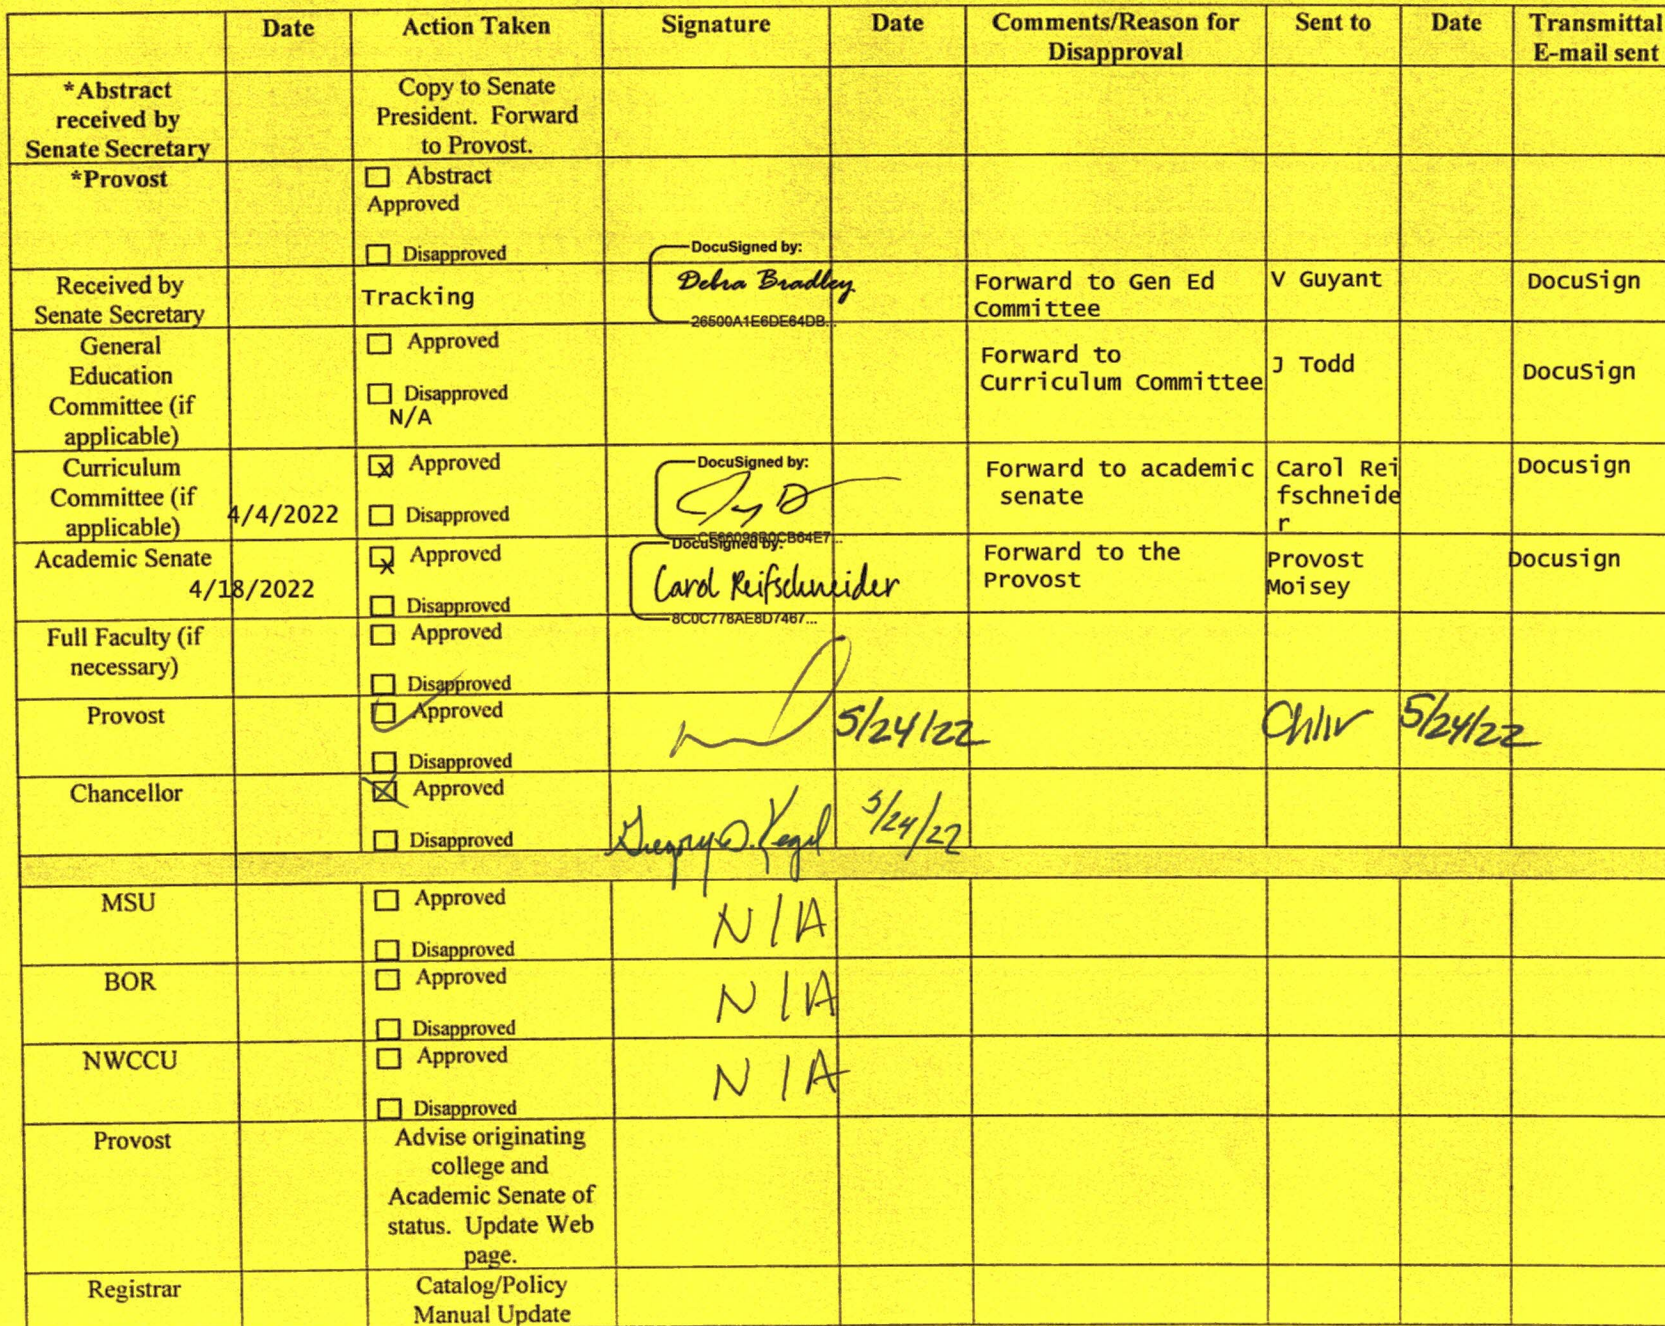 Date Action Taken Signature Date Comments/Reason for Sent to Date Transmittal
Disapproval E-mail sent
*Abstract
received by
Senate Secretary
Copy to Senate
President. Forward
to Provost.
*Provost
Abstract
Approved
Disapproved
Received by
Senate Secretary
Tracking
DocuSigned by:
Debra Bradley
26500A1E6DE64DB...
Forward to Gen Ed
Committee
V Guyant
DocuSign
General
Education
Committee (if
applicable)
Approved
Disapproved
N/A
Forward to
Curriculum Committee
J Todd
DocuSign
Curriculum
Committee (if
applicable)
4/4/2022
x Approved
Disapproved
DocuSigned by:
Forward to academic
senate
Carol Rei
fschneide
r
Docusign
Academic Senate
4/18/2022
x Approved
Disapproved
DocuSigned by:
Carol Reifschneider
8C0C778AE8D7467...
Forward to the
Provost
Provost
Moisey
Docusign
Full Faculty (if
necessary)
Approved
Disapproved
Provost
Approved
Disapproved
5/24/22
5/24/22
Chancellor
Approved
Disapproved
Gregory D. Kegel
5/24/22
MSU
Approved
Disapproved
N/A
BOR
Approved
Disapproved
N/A
NWCCU
Approved
Disapproved
N/A
Provost
Advise originating
college and
Academic Senate of
status. Update Web
page.
Registrar
Catalog/Policy
Manual Update